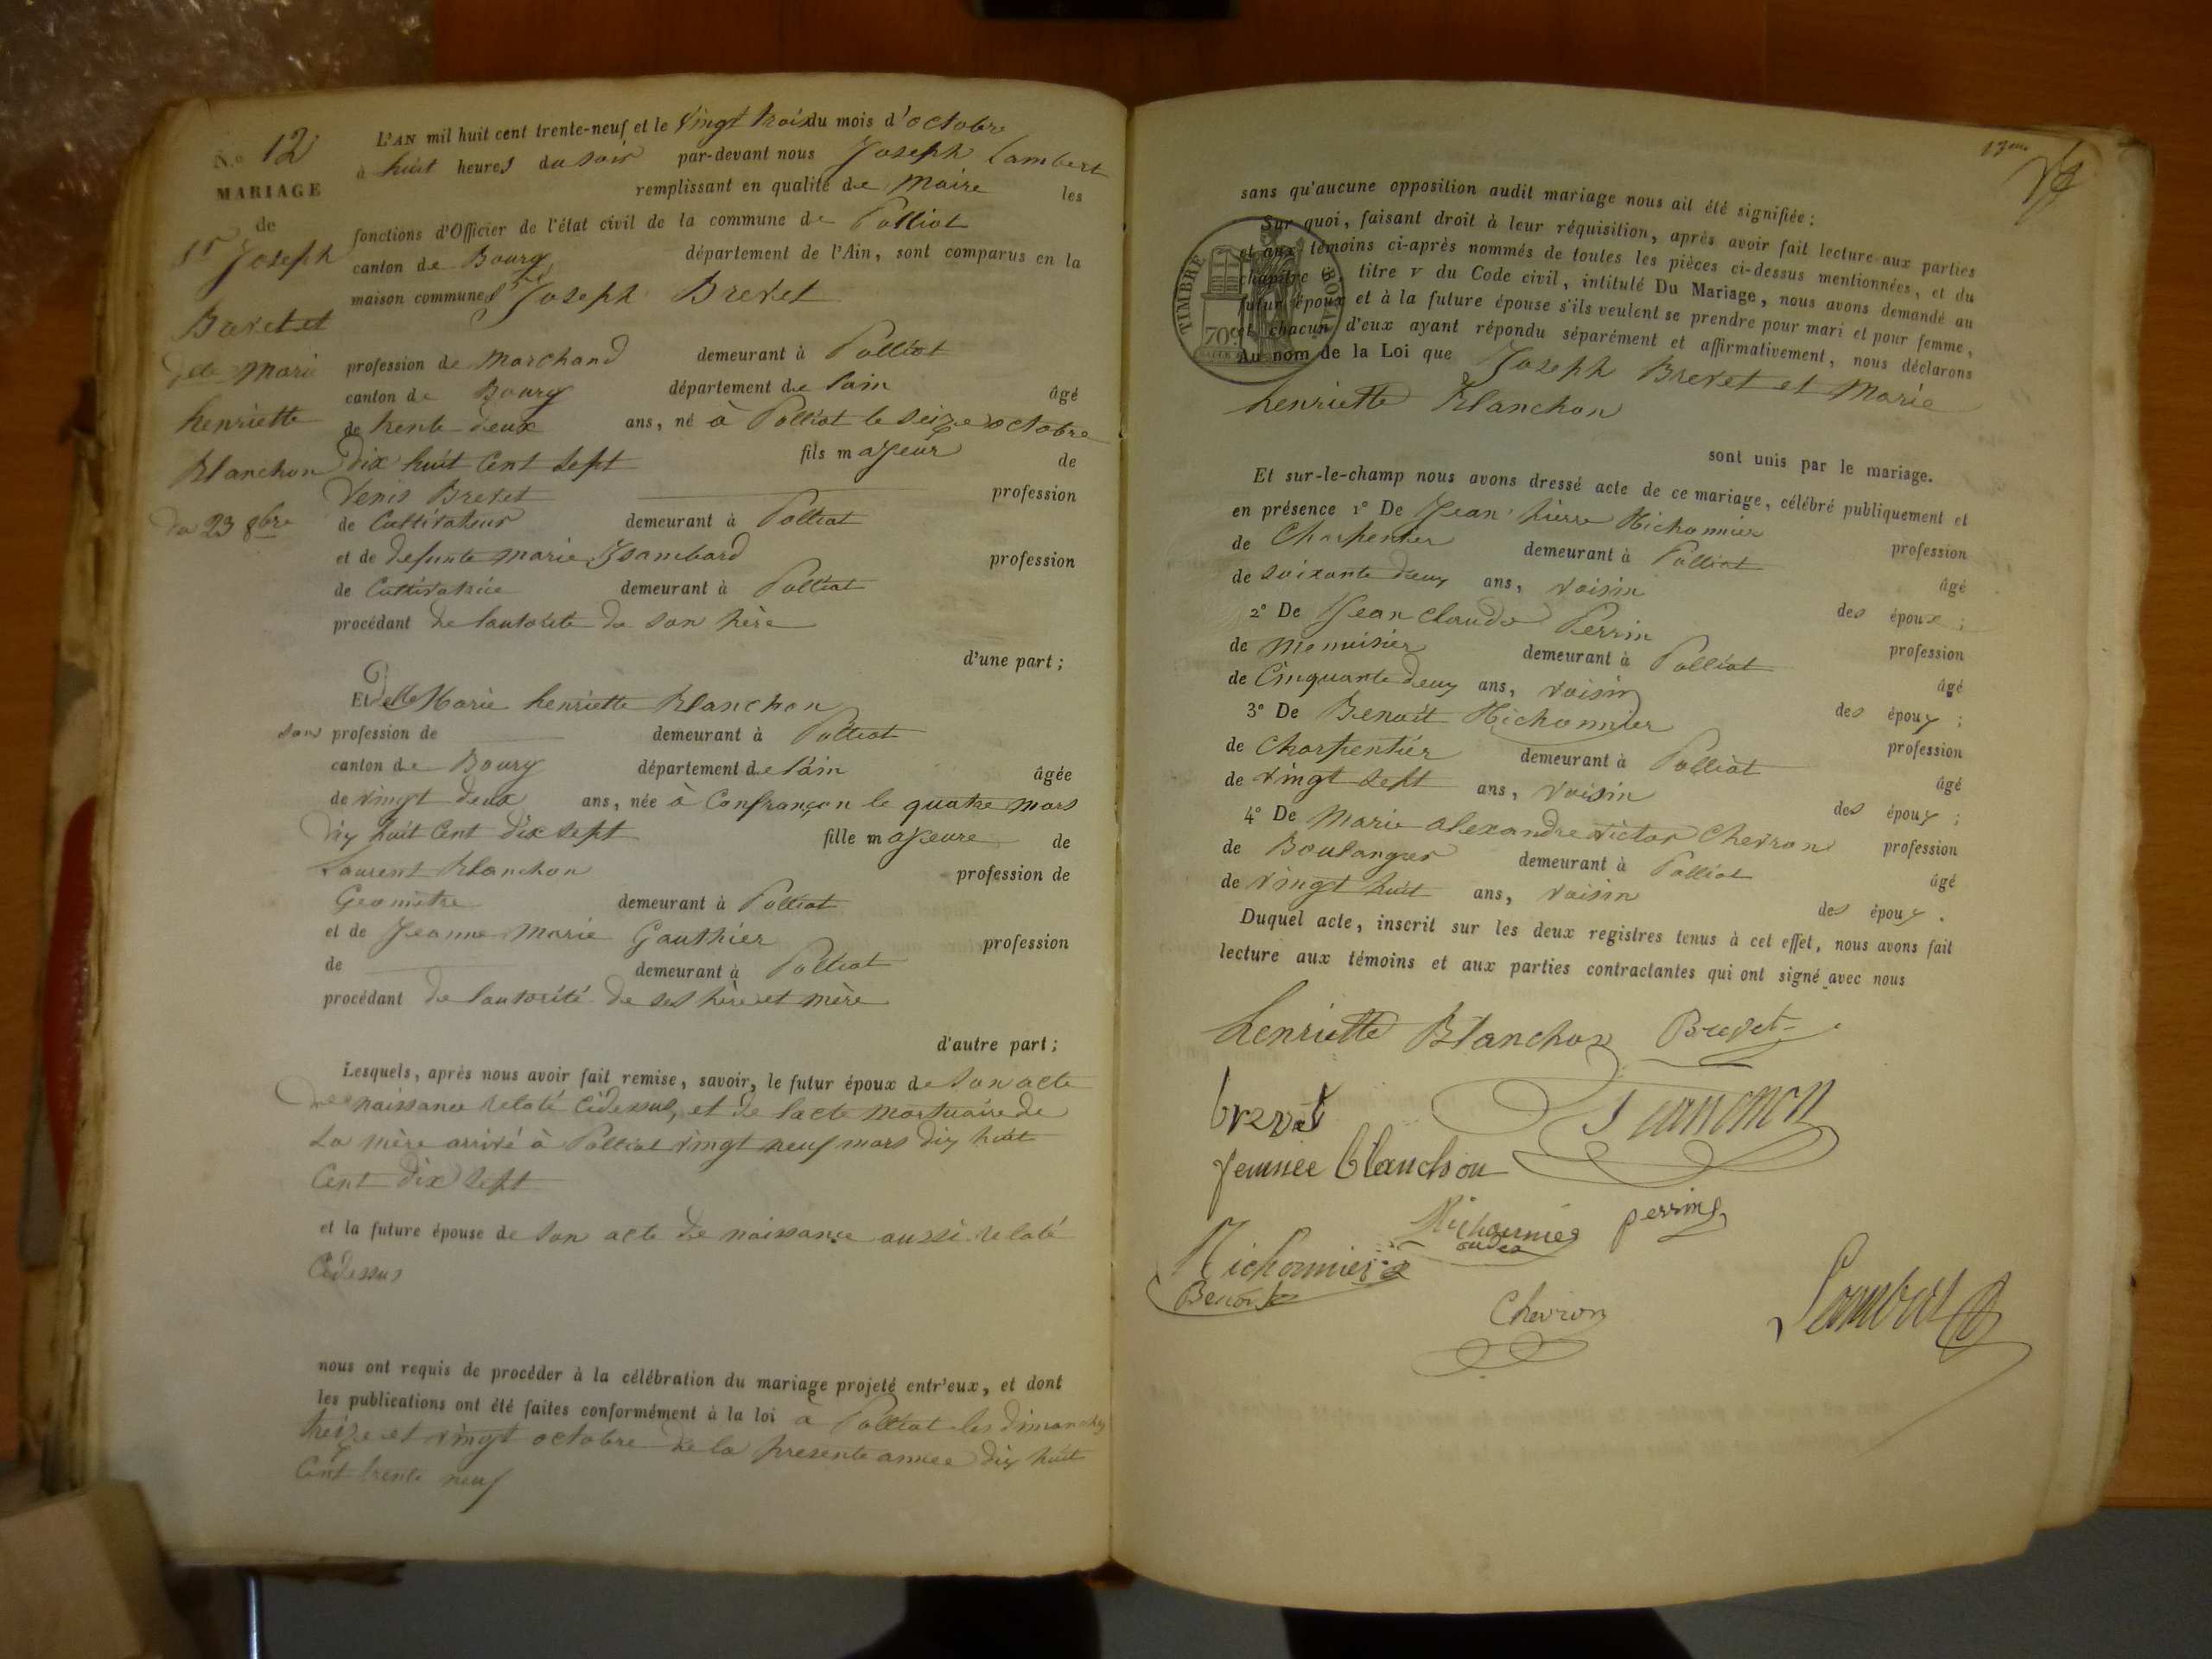 N.o 12
MARIAGE
de
Sr Joseph
Brevet et
Delle Marie
henriette
Blanchon
Du 23 8bre
L'AN mil huit cent trente-neuf et le vingt trois du mois d'octobre
à huit heures du soir par-devant nous Joseph Lambert
remplissant en qualité de Maire les
fonctions d'Officier de l'état civil de la commune de Polliat
canton de Bourg département de l'Ain, sont comparus en la
maison commune Sr Joseph Brevet
profession de Marchand demeurant à Polliat
canton de Bourg département de Lain âgé
de trente deux ans, né à Polliat le seize octobre
dix huit cent sept fils majeur de
Denis Brevet profession
de Cultivateur demeurant à Polliat
et de defunte Marie Isambard profession
de Cultivatrice demeurant à Polliat
procédant de lautorité de son père
d'une part ;
Et Delle Marie henriette Blanchon
sans profession de demeurant à Polliat
canton de Bourg département de Lain âgée
de vingt deux ans, née à Confrançon le quatre mars
dix huit cent dix sept fille majeure de
Laurent Blanchon profession de
Geomètre demeurant à Polliat
et de Jeanne Marie Gauthier profession
de demeurant à Polliat
procédant de lautorité de ses père et mère
d'autre part ;
Lesquels, après nous avoir fait remise, savoir, le futur époux de son acte
de naissance relaté cidessus, et de lacte mortuaire de
sa mère arrivé à Polliat vingt neuf mars dix huit
cent dix sept
et la future épouse de son acte de naissance aussi relaté
cidessus
nous ont requis de procéder à la célébration du mariage projeté entr'eux, et dont
les publications ont été faites conformément à la loi à Polliat les dimanches
treize et vingt octobre de la presente annee dix huit
cent trente neuf
17eme
sans qu'aucune opposition audit mariage nous ait été signifiée :
Sur quoi, faisant droit à leur réquisition, après avoir fait lecture aux parties
et aux témoins ci-après nommés de toutes les pièces ci-dessus mentionnées, et du
chapitre titre v du Code civil, intitulé Du Mariage, nous avons demandé au
futur époux et à la future épouse s'ils veulent se prendre pour mari et pour femme,
et chacun d'eux ayant répondu séparément et affirmativement, nous déclarons
Au nom de la Loi que Joseph Brevet et Marie
henriette Blanchon
TIMBRE ROYAL
70c
sont unis par le mariage.
Et sur-le-champ nous avons dressé acte de ce mariage, célébré publiquement et
en présence 1° De Jean pierre Michonnier profession
de Charpentier demeurant à Polliat âgé
de soixante deux ans, voisin des époux ;
2° De Jean Claude Perrin profession
de Menuisier demeurant à Polliat âgé
de Cinquante deux ans, voisin des époux ;
3° De Benoit Michonnier profession
de Charpentier demeurant à Polliat âgé
de vingt sept ans, voisin des époux ;
4° De Marie alexandre victor Chevron profession
de Boulanger demeurant à Polliat âgé
de vingt huit ans, voisin des époux .
Duquel acte, inscrit sur les deux registres tenus à cet effet, nous avons fait
lecture aux témoins et aux parties contractantes qui ont signé avec nous
henriette Blanchon Brevet
brevet Blanchon
femme blanchon
Michonnier perrin
Michonnier
Benoit
Chevron Lambert